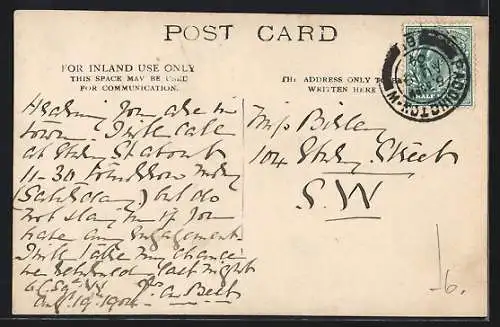 POST CARD
FOR INLAND USE ONLY
THIS SPACE MAY BE USED
FOR COMMUNICATION.
THE ADDRESS ONLY TO BE
WRITTEN HERE
PADDINGTON. W
HALF
Hearing you are in
town I will call
at Ebury St about
11-30 tomorrow
(Saturday) but do
not stay in if you
have any engagement.
I will take my chance
we returned last night
Aug 19th 1904
Miss Birley
104 Ebury Street
S.W
6.